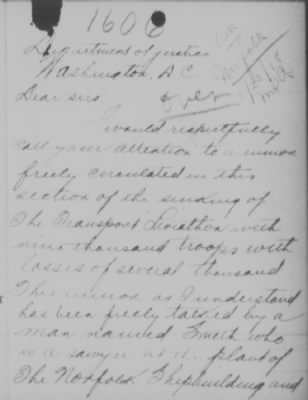 1606
Department of justice
Washington, D.C.
Dear sirs
I would respectfully
call your attention to a rumor
freely circulated in this
section of the sinking of
The Transport Liviathon with
nine thousand troops with
losses of several thousand
This rumor as I understand
has been freely talked by a
man named Smith who
is a sawyer at the plant of
The Norfolk Shipbuilding and
Norfolk